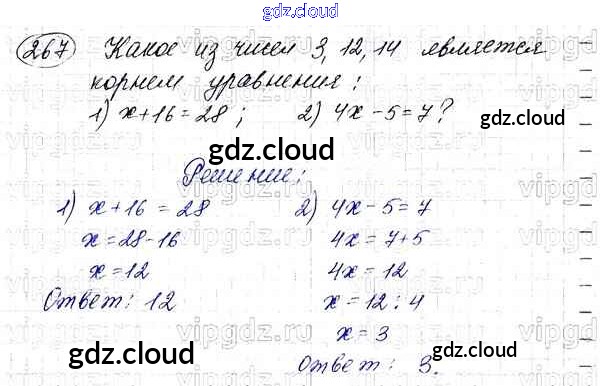 gdz.cloud
267 Какое из чисел 3, 12, 14 является
корнем уравнения:
1) x+16=28; 2) 4x-5=7?
gdz.cloud
gdz.cloud
Решение:
1) x+16=28
x=28-16
x=12
Ответ: 12
2) 4x-5=7
4x=7+5
4x=12
x=12:4
x=3
Ответ: 3.
gdz.cloud
gdz.cloud